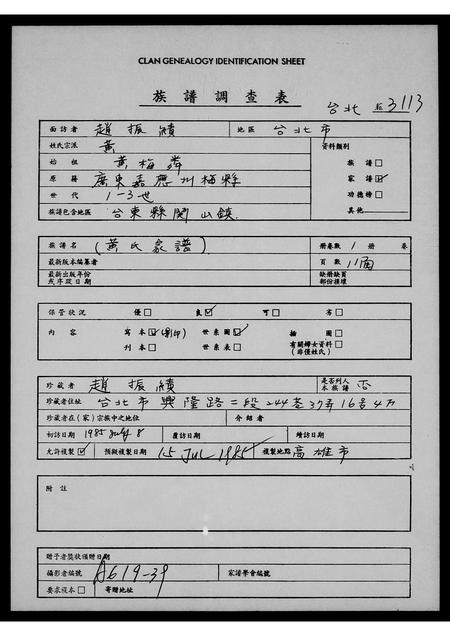 CLAN GENEALOGY IDENTIFICATION SHEET
族譜調查表
台北 3113
面訪者 趙振績 地區 台北市
姓氏宗派 黃 資料類別
始祖 黃梅 族譜□
原籍 廣東嘉應州梅縣 家譜☑
世代 1-3世 功德榜□
族譜包含地區 台東縣關山鎮 其他
族譜名 (黃氏家譜) 冊卷數 1 冊 卷
最新版本編纂者 頁數 11面
最新出版年份或序跋日期 缺冊缺頁部份損壞
保管狀況 優□ 良☑ 可□ 劣□
內容 寫本☑(影印) 世系圖☑ 插圖□
刊本□ 世系表□ 有關婦女資料□(非僅姓氏)
珍藏者 趙振績 是否列入本族譜 否
珍藏者住址 台北市興隆路二段244巷37弄16号4万
珍藏者在(家)宗族中之地位 介紹者
初訪日期 1985 July 8 覆訪日期 續訪日期
允許複製☑ 預擬複製日期 15 JUL 1985 複製地點 高雄市
附註
贈予者獎狀頒贈日期
攝影者編號 A619-39 家譜學會編號
要求複本□ 寄贈地址